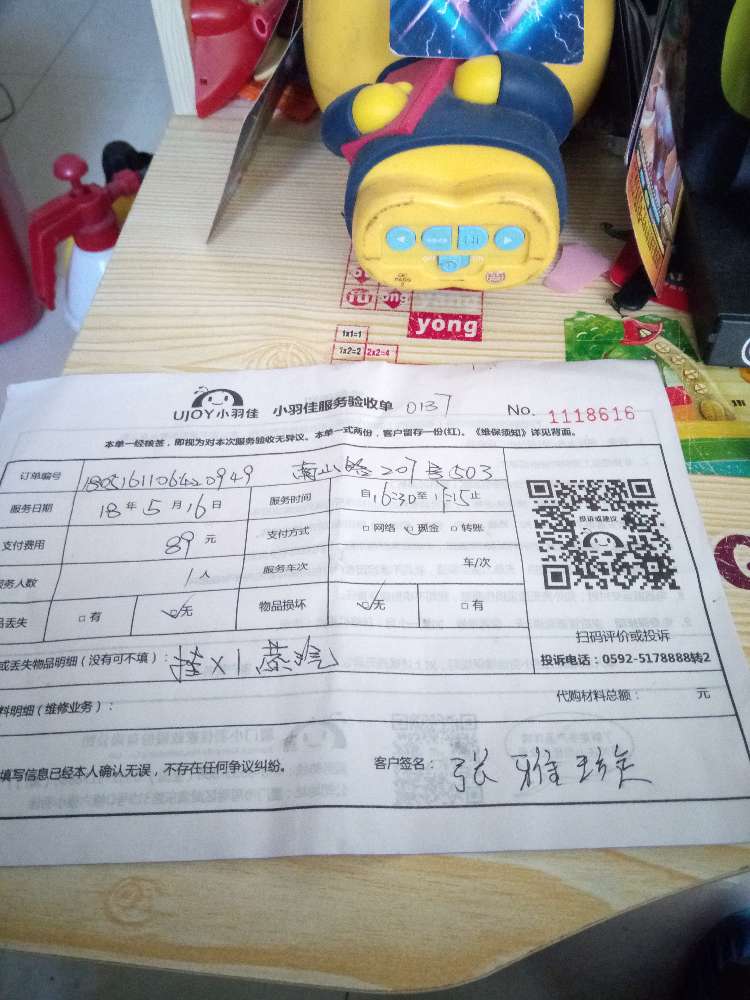 yong
1x1=1
1x2=2 2x2=4
UJOY小羽佳 小羽佳服务验收单 0137 No. 1118616
本单一经核签，即视为对本次服务验收无异议。本单一式两份，客户留存一份(红)。《维保须知》详见背面。
订单编号 南山路207号503
服务日期 18年5月16日 服务时间 自16:30至17:15止
支付费用 89元 支付方式 网络 现金 转账
务人数 1人 服务车次 车/次
丢失 有 无 物品损坏 无 有
投诉或建议
扫码评价或投诉
投诉电话：0592-5178888转2
或丢失物品明细（没有可不填）： 挂X1 蒸汽
代购材料总额： 元
料明细（维修业务）：
填写信息已经本人确认无误，不存在任何争议纠纷。 客户签名： 张雅